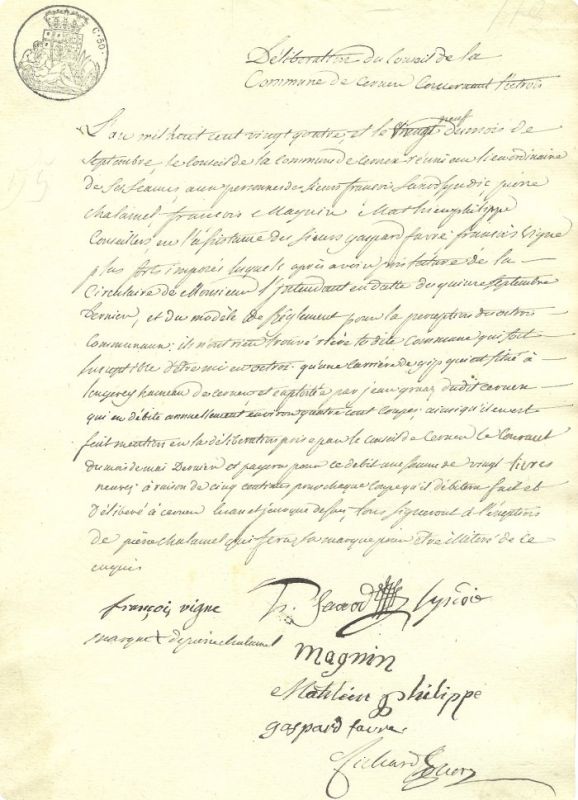 C. 50.
Déliberation du Conseil de la
Commune de Cernex Concernant l'octrois
L'an mil huit cent vingt quatre, et le vingt neuf du mois de
Septembre le Conseil de la Commune de Cernex réuni au lieu ordinaire
de ses séances aux personnes de sieurs françois Saxod syndic pierre
chalamel, françois Magnin, Mathieu philippe
Conseillers en l'assistance des sieurs gaspard favre, françois Vigne
plus forts imposés lesquels après avoir pris lecture de la
Circulaire de Monsieur l'Intendant en datte du quinze septembre
Dernier, et du modèle de Réglement pour la perception des octrois
Communaux; ils n'ont rien trouvé rière la dite Commune qui soit
susceptible d'être mi en octroi qu'une carrière de gip qui est situé à
hameau de cernex et exploitée par jean dudit cernex
qui en débite annuellement environ quatre cent coupes, ainsi qu'il en est
fait mention en la délibération prise par le conseil de Cernex le Courant
du mois de mai Dernier et payera pour ce debit une somme de vingt livres
neuves à raison de cinq centimes pour chaque Coupe qu'il débitera fait et
Délibéré à cernex les an et jour que dessus, tous signeront à l'éxeption
de pierre chalamel qui fera sa marque pour être illitéré de ce
enquis
françois vigne
marque + de pierre chalamel
f. Saxod syndic
magnin
Mathieu philippe
gaspard favre